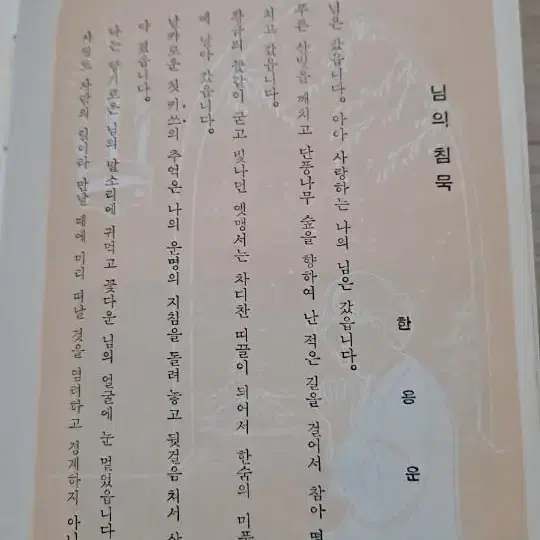 님의 침묵
한용운
님은 갔읍니다. 아아 사랑하는 나의 님은 갔읍니다.
푸른 산빛을 깨치고 단풍나무 숲을 향하여 난 적은 길을 걸어서 참아 떨
치고 갔읍니다.
황금의 꽃같이 굳고 빛나던 옛맹서는 차디찬 띠끌이 되어서 한숨의 미풍
에 날아 갔읍니다.
날카로운 첫 키쓰의 추억은 나의 운명의 지침을 돌려 놓고 뒷걸음쳐서 사
아 졌읍니다.
나는 향기로은 님의 말소리에 귀먹고 꽃다운 님의 얼굴에 눈 멀었읍니다
사랑도 사람의 일이라 만날 때에 미리 떠날 것을 염려하고 경계하지 아니